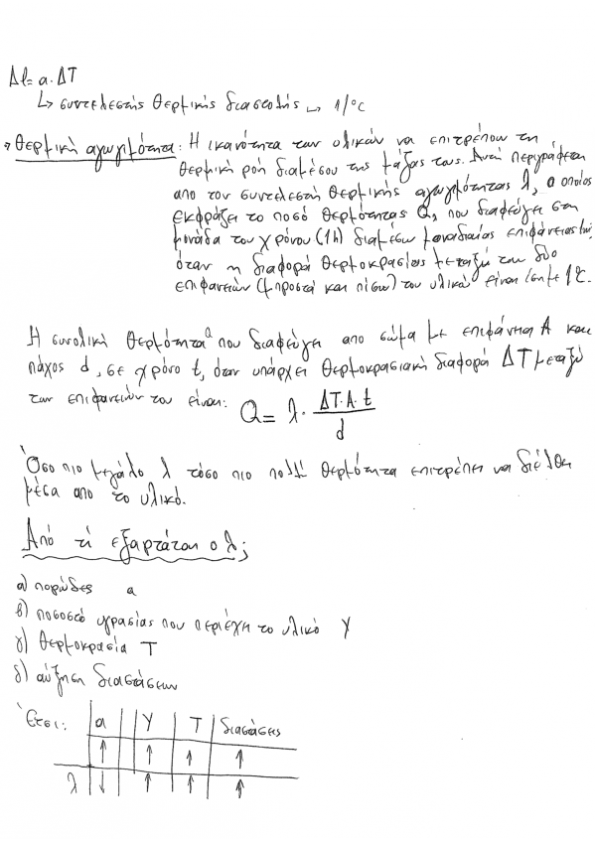 Δl = α · ΔΤ
↳ συντελεστής θερμικής διαστολής → 1/°C
→ Θερμική αγωγιμότητα: Η ικανότητα των υλικών να επιτρέπουν τη
θερμική ροή διαμέσου της μάζας τους. Αυτή περιγράφεται
απο τον συντελεστή θερμικής αγωγιμότητας λ, ο οποίος
εκφράζει το ποσό θερμότητας Q, που διαφεύγει στη
μονάδα του χρόνου (1h) διαμέσω μοναδιαίας επιφάνειας
όταν η διαφορά θερμοκρασίας μεταξύ των δύο
επιφανειών (μπροστά και πίσω) του υλικού είναι ίση με 1°C.
Η συνολική θερμότητα που διαφεύγει απο σώμα με επιφάνεια Α και
πάχος d, σε χρόνο t, όταν υπάρχει θερμοκρασιακή διαφορά ΔΤ μεταξύ
των επιφανειών του είναι: Q = λ · ΔΤ·Α·t / d
Όσο πιο μεγάλο λ τόσο πιο πολλή θερμότητα επιτρέπει να διέλθη
μέσα απο το υλικό.
Από τί εξαρτάται ο λ;
α) πορώδες α
β) ποσοστό υγρασίας που περιέχη το υλικό Υ
γ) θερμοκρασία Τ
δ) αύξηση διαστάσεων
Έτσι: α Υ Τ διαστάσεις
↑ ↑ ↑ ↑
λ ↓ ↑ ↑ ↑